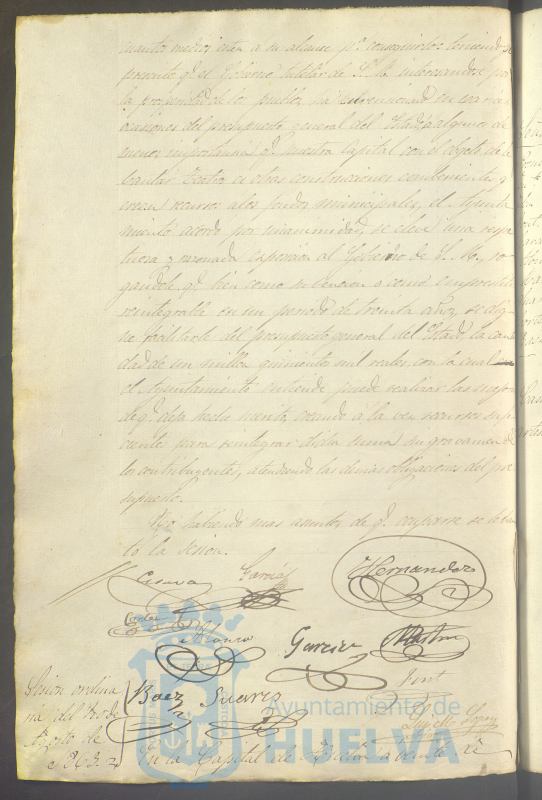 cuantos medios esten a su alcance pª conseguirlos teniendo
presente qe. el Gobierno tutelar de S. M. interesandose por
la prosperidad de los pueblos ha subvencionado en varias
ocasiones del presupuesto general del Estado a algunos de
menor importancia qe. nuestra Capital con el objeto de le
bantar teatro u otras construcciones
crean recursos a los fondos municipales, el Ayunta
miento acordó por unanimidad, se eleve una respe
tuosa y razonada esposicion al Gobierno de S. M., ro
gandole qe. bien como subencion o como emprestito
reintegrable en un periodo de treinta años, se dig
ne facilitarle del presupuesto general del Estado la canti
dad de un millon quinientos mil reales, con la cual
el Ayuntamiento entiende puede realizar las mejoras
de qe. deja hecho merito, creando a la vez recursos sufi
cientes para reintegrar dicha suma sin gravamen de
los contribuyentes, atendiendo las demas obligaciones del pre
supuesto.
No habiendo mas asuntos de qe. ocuparse se leban
tó la sesion.
Garcia
Hernandez
Garcia
Baez
Suarez
Font
Sesion ordina
ria del 20 de
Agosto de
1863.
En la Capital de Huelva a veinte de
Ayuntamiento de
HUELVA